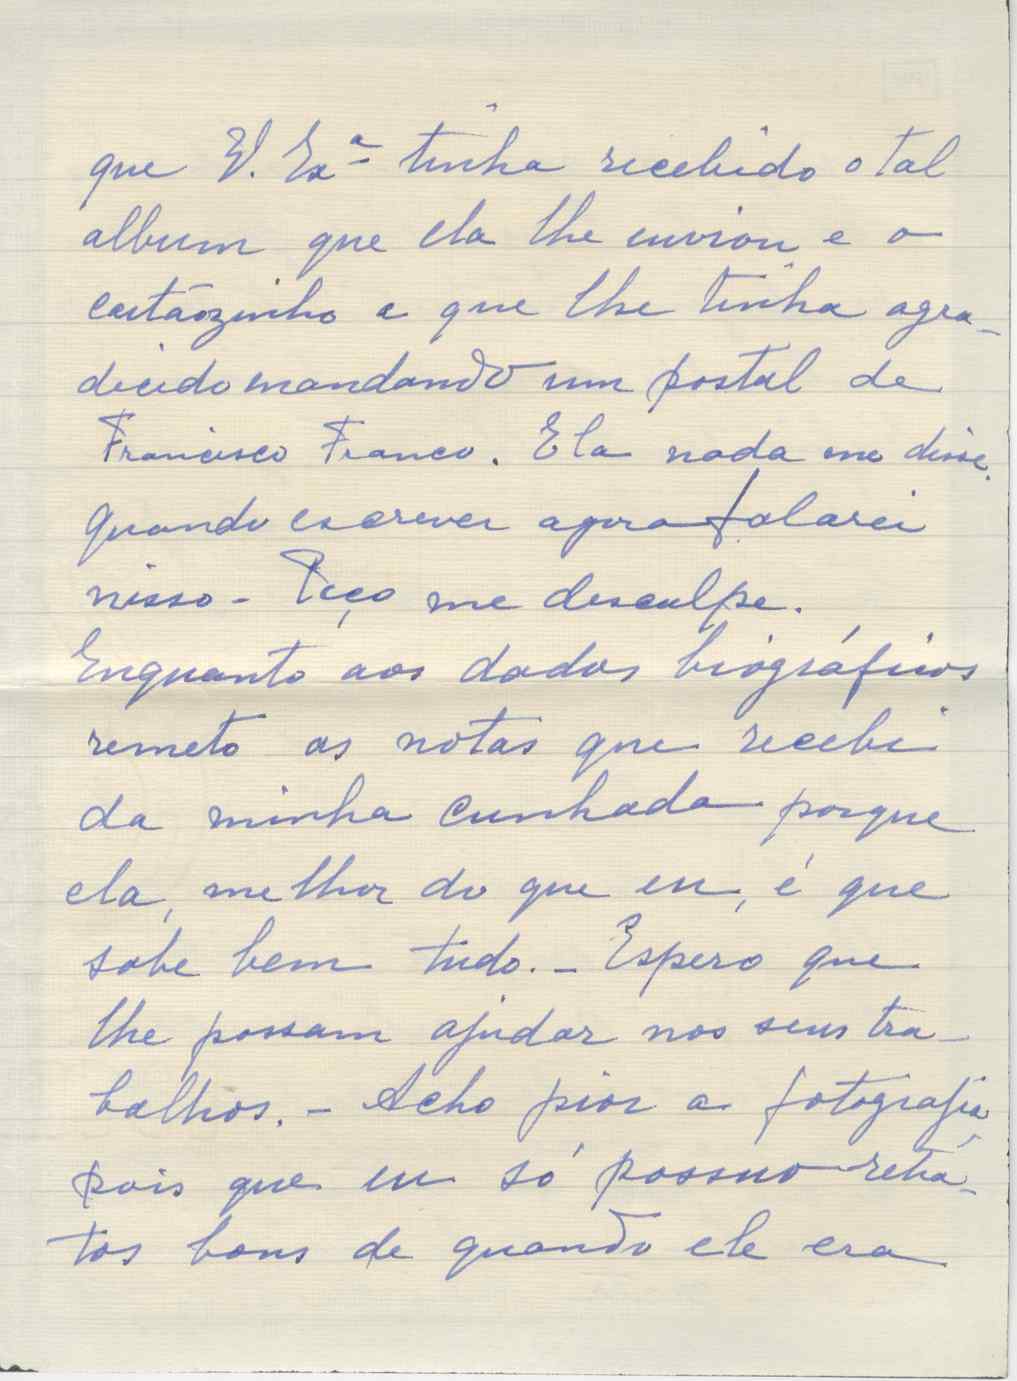 que V. Exª tinha recebido o tal
album que ela lhe enviou e o
cartãozinho e que lhe tinha agra-
decido mandando um postal de
Francisco Franco. Ela nada me disse.
Quando escrever agora falarei
nisso - Peço me desculpe.
Enquanto aos dados biográficos
remeto as notas que recebi
da minha cunhada porque
ela, melhor do que eu, é que
sabe bem tudo. - Espero que
lhe possam ajudar nos seus tra-
balhos. - Acho pior a fotografia
pois que eu só possuo retra-
tos bons de quando ele era